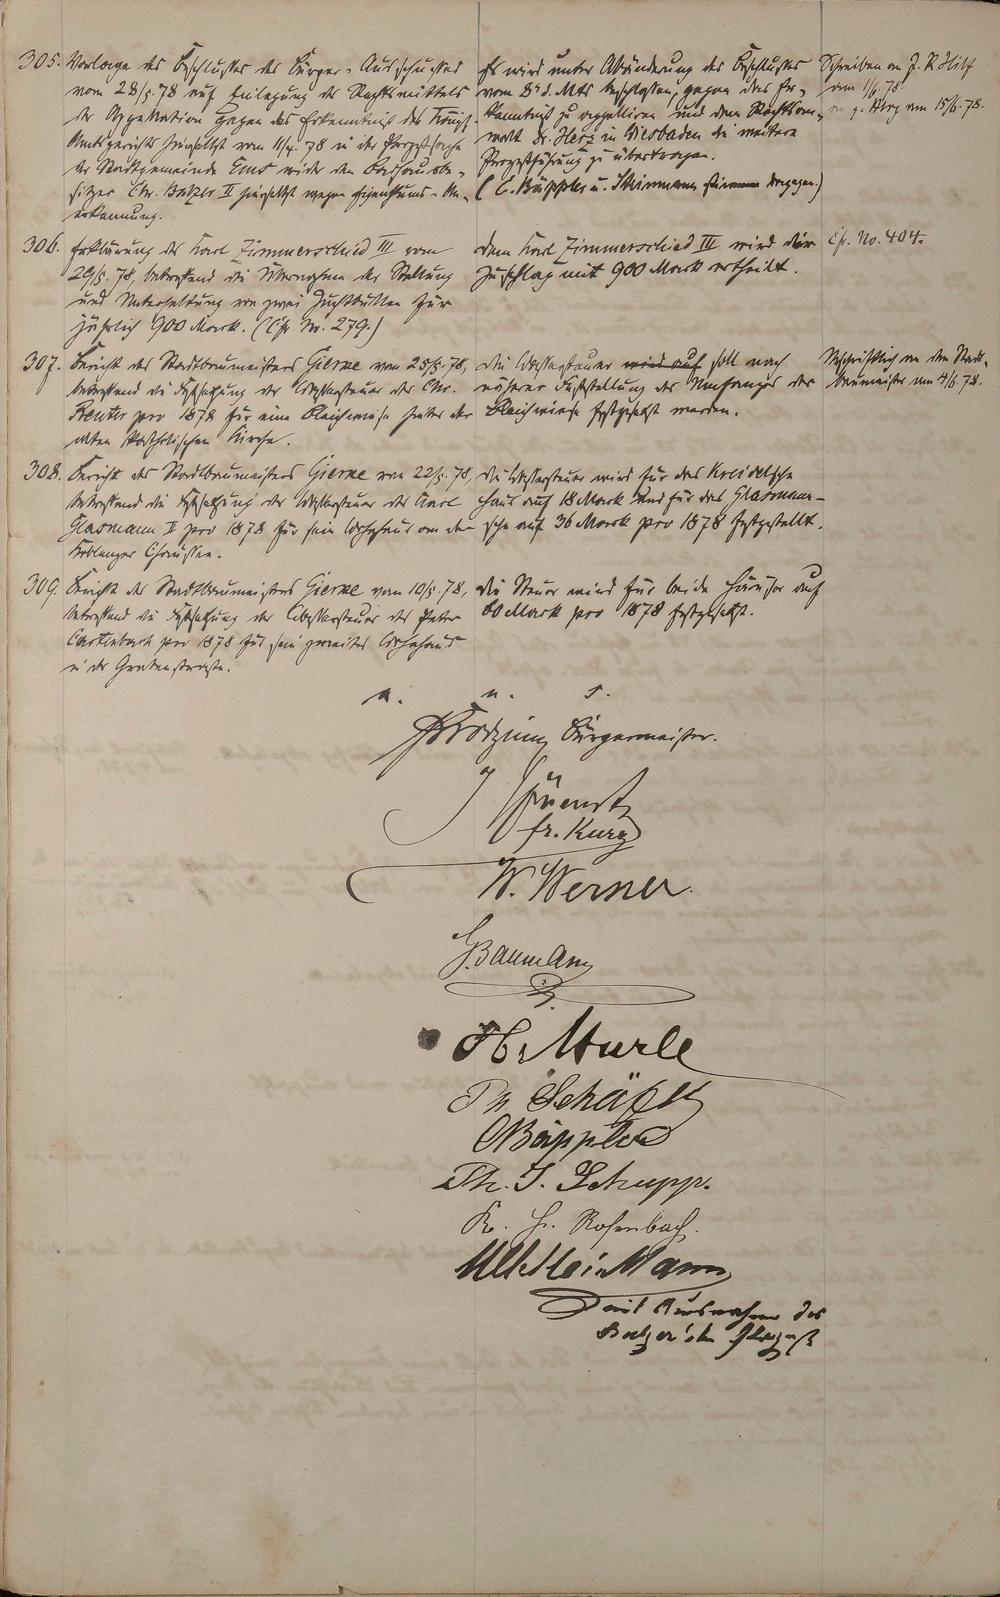 305. Vorlage des Beschlusses des Bürger-Ausschusses
vom 28/5. 78 auf Einlegung des Rechtsmittels
der Appellation gegen das Erkenntniß des Königl.
Amtsgerichts hierselbst vom 11/4. 78 in der Prozeßsache
der Stadtgemeinde Ems wider den Badhausbe-
sitzer Chr. Balzer II hierselbst wegen Eigenthums-An-
erkennung.
Es wird unter Abänderung des Beschlusses
vom 8t d. Mts beschlossen, gegen das Er-
kenntniß zu appelliren und dem Rechtsan-
walt Dr. Herz in Wiesbaden die weitere
Prozeßführung zu übertragen.
(C. Bäppler u. Steinmann stimmen dagegen.)
Schreiben an J. R. Hilf
am 1/6. 78.
an g. Herz am 15/6. 78.
306. Erklärung des Karl Zimmerschied III vom
29/5. 78, betreffend die Übernahme der Stellung
und Unterhaltung von zwei Zuchtbullen für
jährlich 900 Mark. (Cfr. Nr. 279.)
Dem Karl Zimmerschied III wird der
Zuschlag mit 900 Mark ertheilt.
Cfr. No. 404.
307. Bericht des Stadtbaumeisters Gierne vom 25/5. 78,
betreffend die Festsetzung der Wassersteuer des Chr.
Reuter pro 1878 für eine Bleichwiese hinter der
alten katholischen Kirche.
Die Wassersteuer wird auf soll nach
näherer Feststellung des Umfanges der
Bleichwiese festgesetzt werden.
Abschriftlich an den Stadt-
baumeister am 4/6. 78.
308. Bericht des Stadtbaumeisters Gierne vom 22/5. 78,
betreffend die Festsetzung der Wassersteuer des Karl
Glasmann II pro 1878 für sein Wohnhaus an der
Koblenzer Chaussee.
Die Wassersteuer wird für das Kreidel'sche
Haus auf 18 Mark und für das Glasmann-
sche auf 36 Mark pro 1878 festgestellt.
309. Bericht des Stadtbaumeisters Gierne vom 10/5. 78,
betreffend die Festsetzung der Wassersteuer des Peter
pro 1878 für sein zweites Wohnhaus
in der Grabenstraße.
Die Steuer wird für beide Häuser auf
60 Mark pro 1878 festgesetzt.
a. u. s.
Bürgermeister.
fr. Kurz
W. Werner
G. Baumann
Murle
Ph Schäfer
C Bäppler
Ph. J. Schupp.
K. H. Rosenbach.
Steinmann
mit Ausnahme des
Balzer'schen